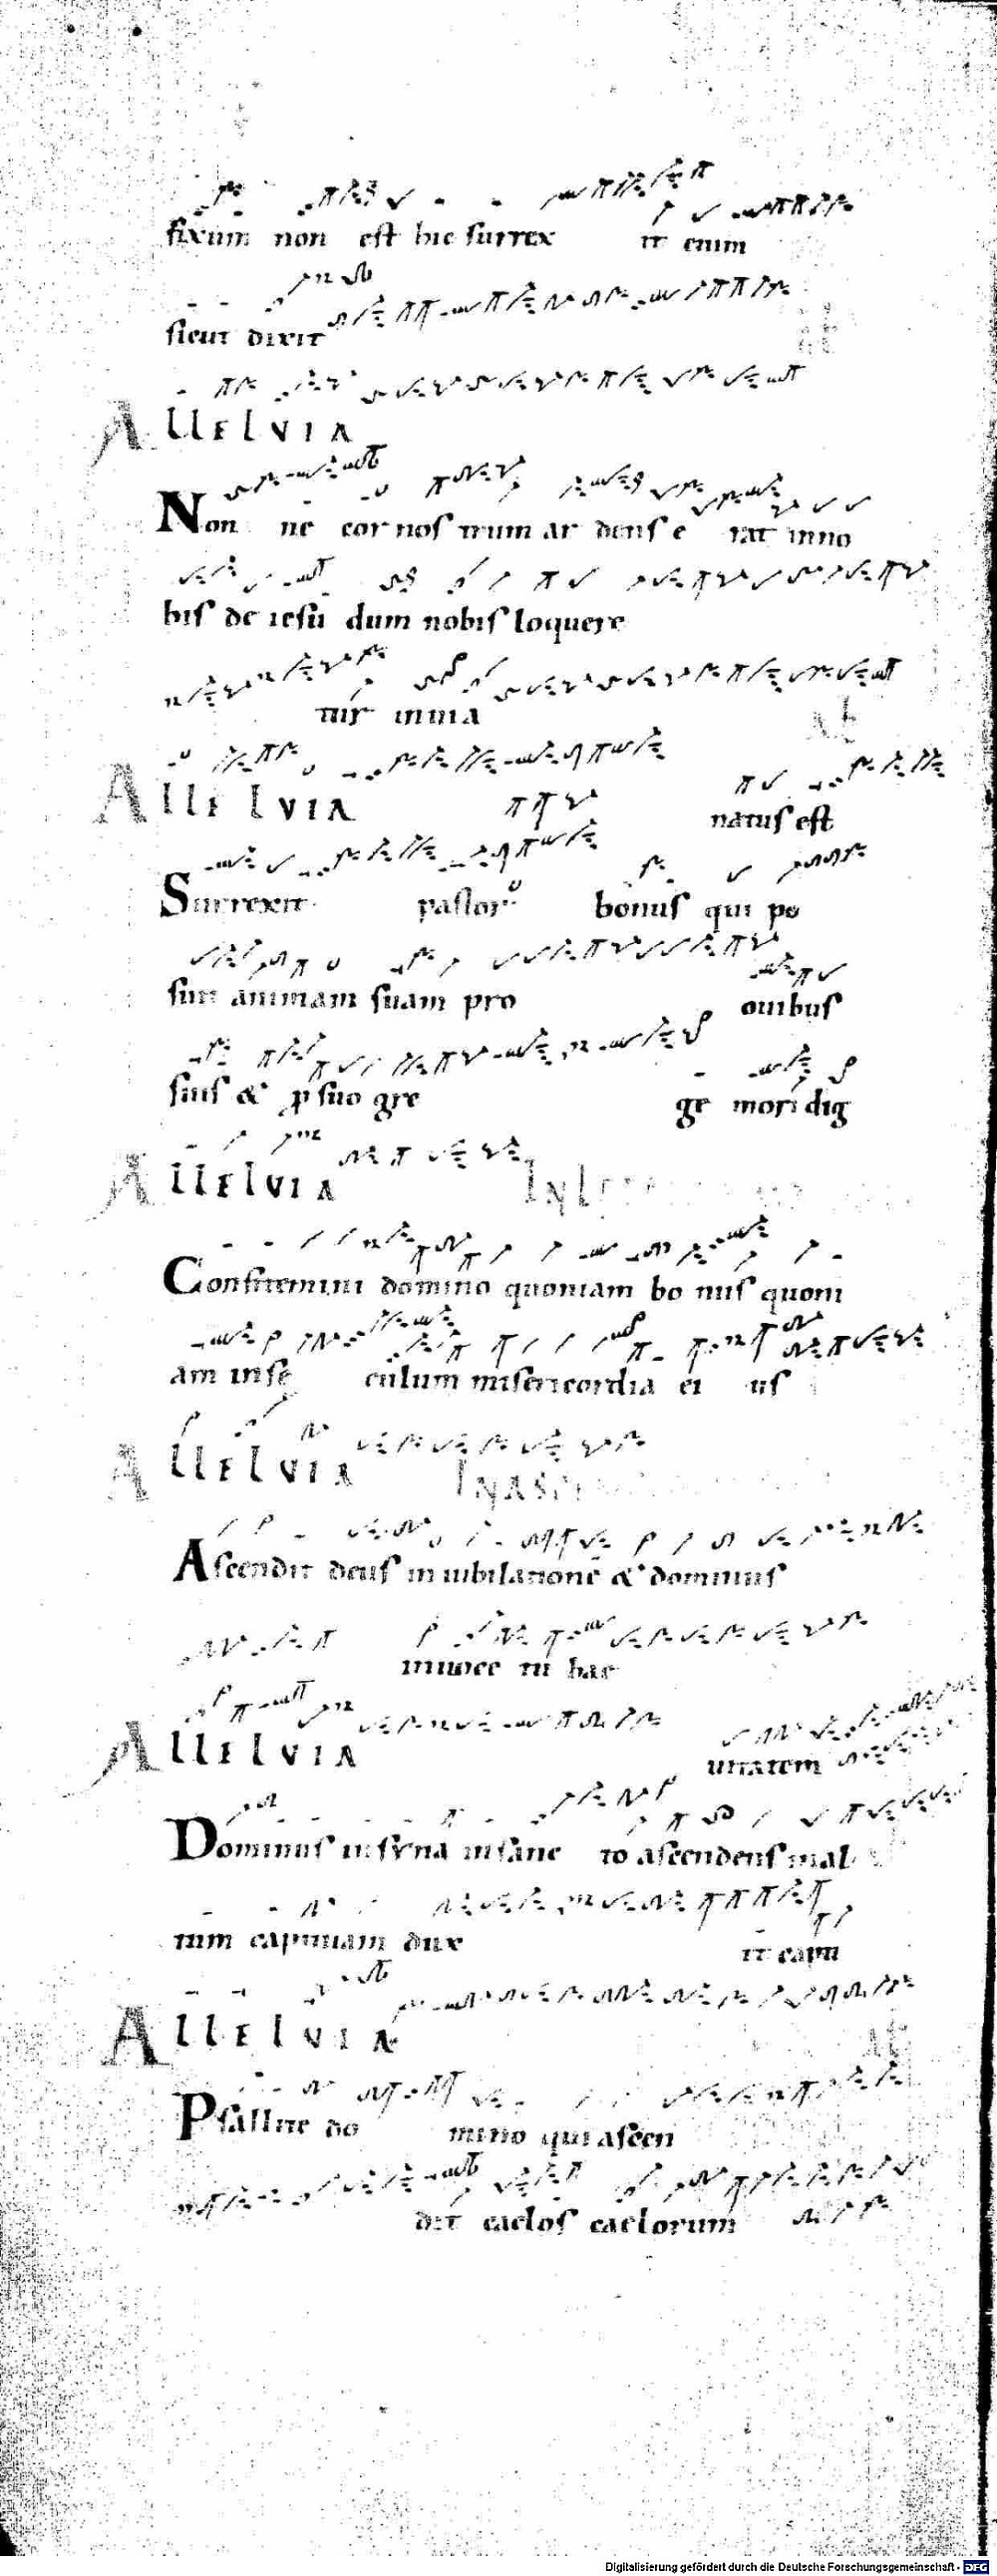 fixum non est hic surrex it enim
sicut dixit at
ALLELVIA
Non ne cor nostrum ardens erat in no
bis de iesu dum nobis loquere
tur in uia
ALLELVIA natus est
Surrexit pastor bonus qui po
suit animam suam pro ouibus
suis & p suo gre ge mori dig
ALLELVIA
Confitemini domino quoniam bonus quoni
am in seculum misericordia eius
ALLELVIA INASC
Ascendit deus in iubilatione & dominus
in uoce tubae
ALLELVIA uitatem
Dominus in syna in sancto ascendens in al
tum captiuam dux it capti
ALLELVIA at
Psallite domino qui ascen
dit caelos caelorum
Digitalisierung gefördert durch die Deutsche Forschungsgemeinschaft - DFG